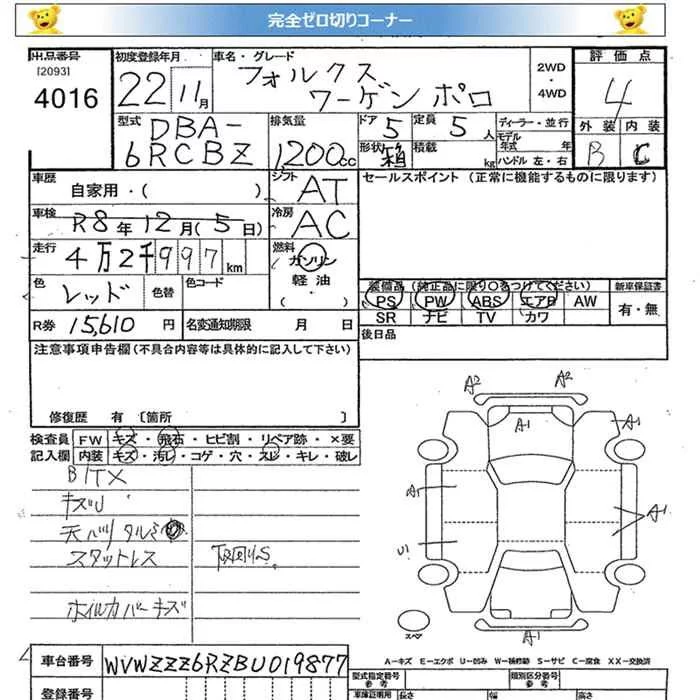 完全ゼロ切りコーナー
出品番号 初度登録年月 車名・グレード 2WD・4WD 評価点
[2093]
4016 22 11月 フォルクスワーゲン ポロ 4
型式 排気量 ドア 定員 ディーラー・並行 外装 内装
DBA-6RCBZ 1200cc 5 5人 モデル年式 年 B C
形状 箱 積載 kg ハンドル 左・右
車歴 自家用・( ) シフト AT セールスポイント (正常に機能するものに限ります)
車検 R8年12月(5日) 冷房 AC
走行 4万2千997km 燃料 ガソリン・軽油・( )
色 レッド 色替 色コード 装備品 (純正品に限り○をつけてください) 新車保証書
PS PW ABS エアB AW 有・無
SR ナビ TV カワ
R券 15,610円 名変通知期限 月 日 後日品
注意事項申告欄(不具合内容等は具体的に記入して下さい)
修復歴 有 [箇所 ]
検査員 FW キズ・飛石・ヒビ割・リペア跡・×要
記入欄 内装 キズ・汚レ・コゲ・穴・スレ・キレ・破レ
キズU
天バリタルミ
スタットレス
ホイルカバーキズ
A2 A2
A1 A1
A1
A1
U1
スペア A1
A-キズ E-エクボ U-凹み W-補修跡 S-サビ C-腐食 XX-交換済
車台番号 WVWZZZ6RZBU019877 型式指定番号 参考 類別区分番号 参考
登録番号 車庫証明用 長さ 幅 高さ